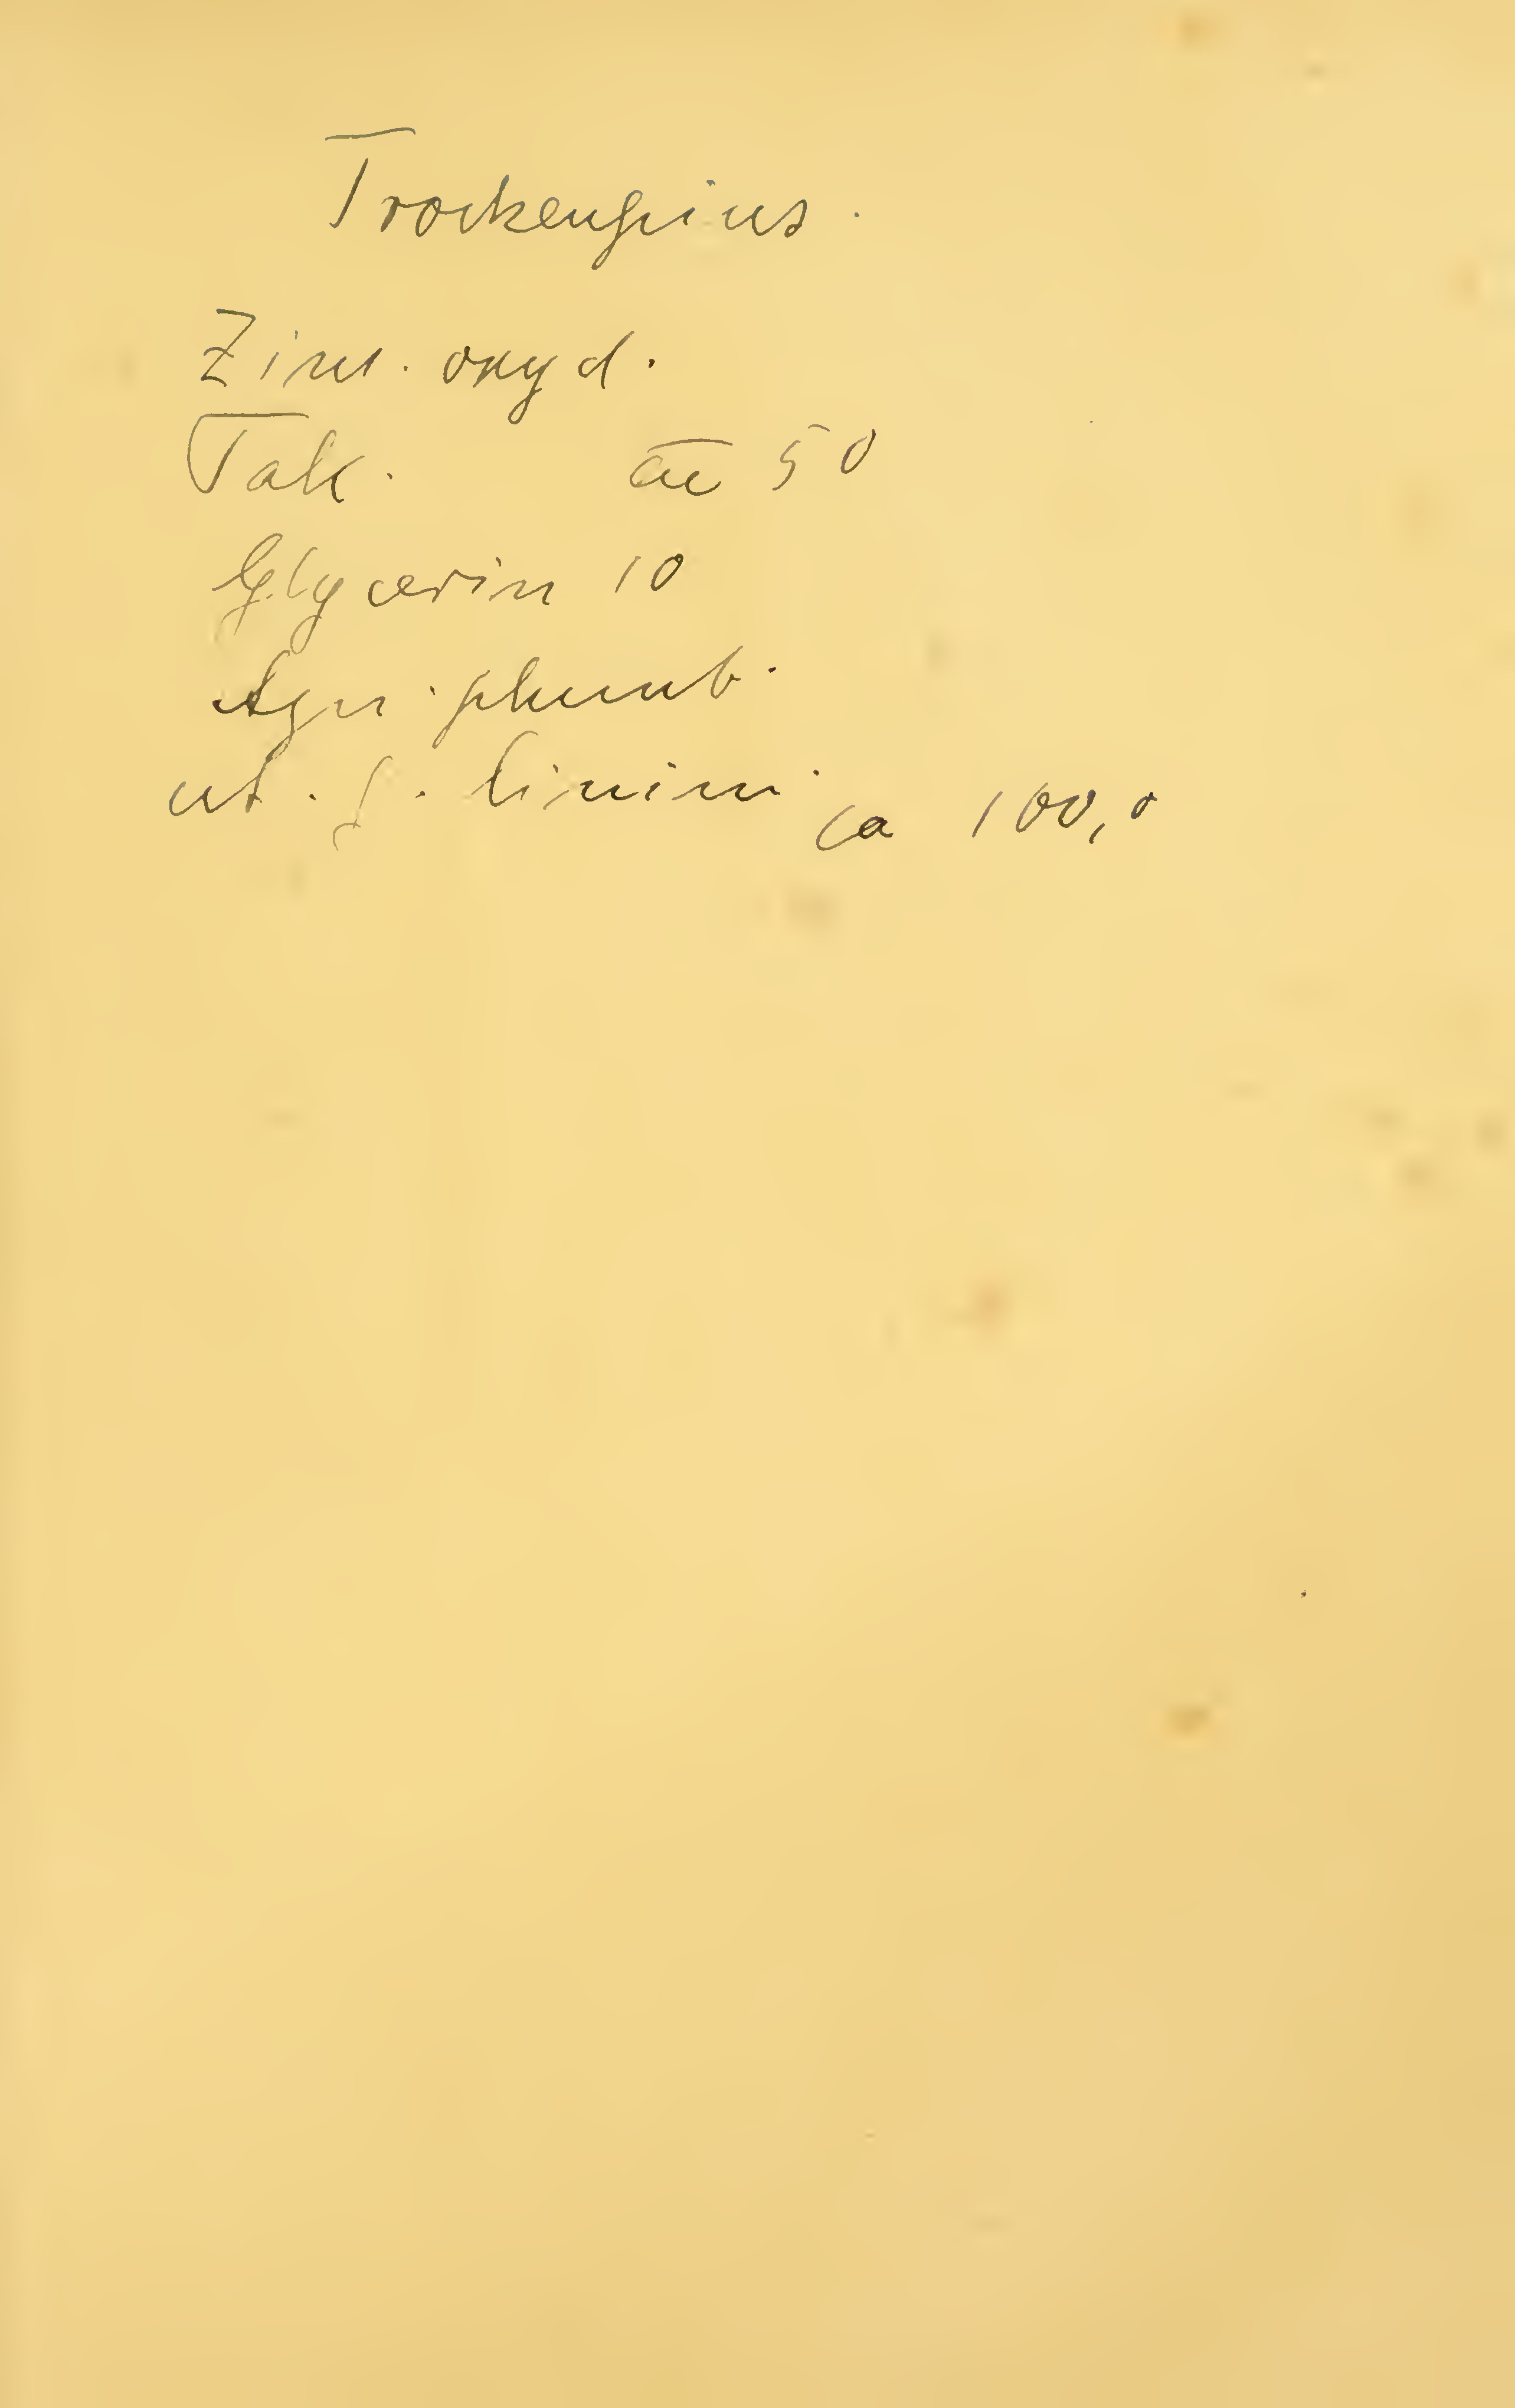 Trockenpins.
Zinc. oxyd.
Talc. aa 50
Glycerin 10
Aqu. plumb.
ut. f. linim. ca 100,0